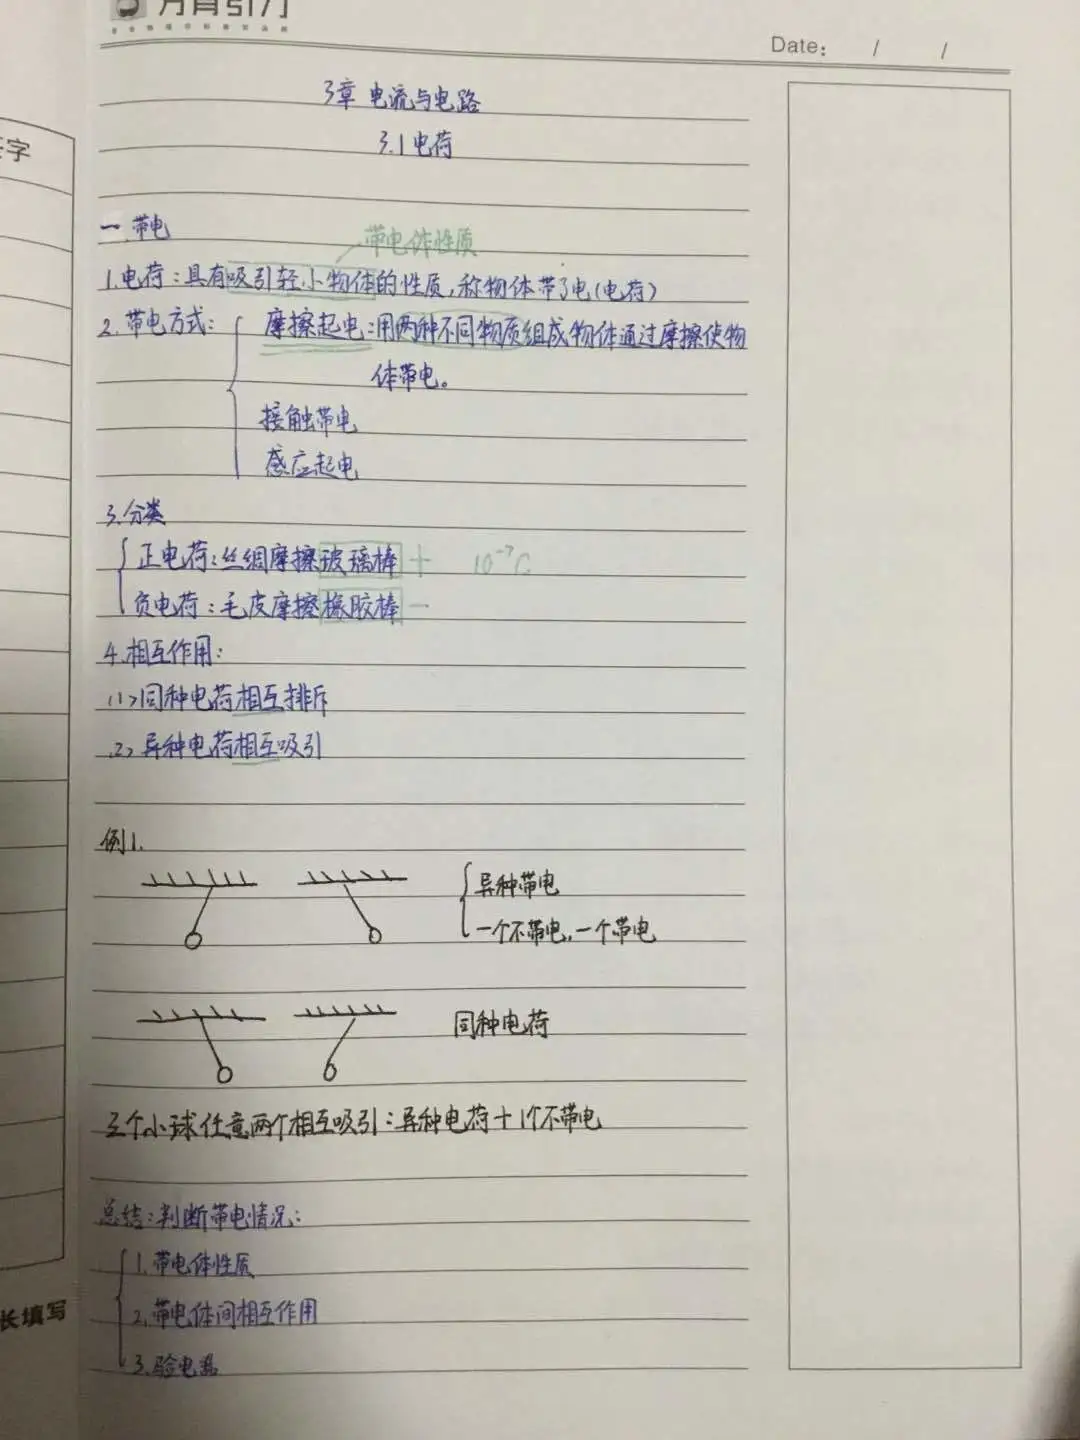 万有引力
Date: / /
字
3章 电流与电路
3.1 电荷
一.带电
带电体性质
1.电荷:具有吸引轻小物体的性质,称物体带了电(电荷)
2.带电方式:
摩擦起电:用两种不同物质组成物体通过摩擦使物
体带电。
接触带电
感应起电
3.分类
正电荷:丝绸摩擦玻璃棒 + 10⁻⁷C
负电荷:毛皮摩擦橡胶棒 -
4.相互作用:
(1)同种电荷相互排斥
(2)异种电荷相互吸引
例1.
异种带电
一个不带电,一个带电
同种电荷
三个小球任意两个相互吸引:异种电荷+1个不带电
总结:判断带电情况:
1.带电体性质
2.带电体间相互作用
3.验电器
长填写